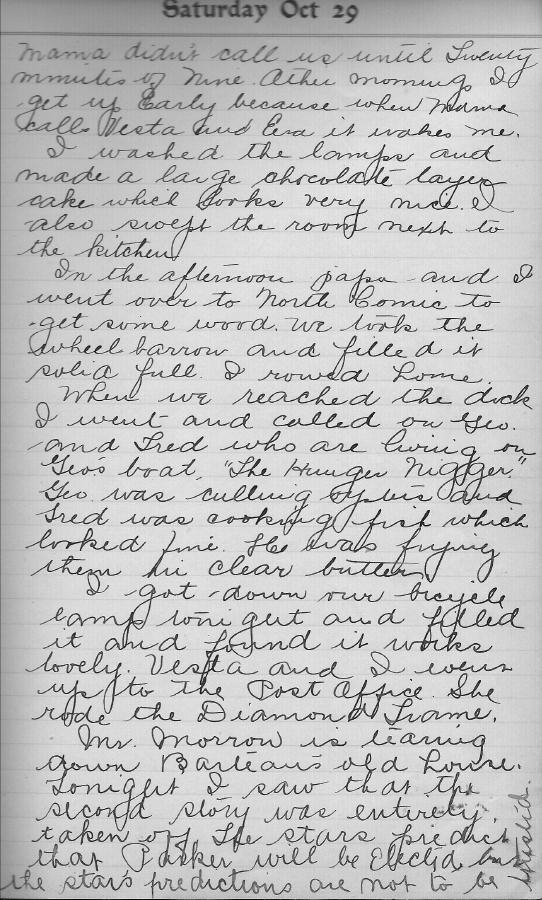 Saturday Oct 29
Mama didn't call us until Twenty
minutes of Nine. Other mornings I
get up Early because when Mama
calls Vesta and Eva it wakes me.
I washed the lamps and
made a large chocolate layer
cake which looks very nice. I
also swept the room next to
the kitchen
In the afternoon papa and I
went over to North Comic to
get some wood. We took the
wheel barrow and filled it
solid full. I rowed home.
When we reached the dock
I went and called on Geo.
and Fred who are living on
Geos boat, "The Hunger Nigger."
Geo was culling oysters and
Fred was cooking fish which
looked fine. He was frying
them in clear butter
I got down our bicycle
lamp tonight and filled
it and found it works
lovely. Vesta and I went
up to the Post Office. She
rode the Diamond Frame.
Mr. Morrow is tearing
down Barteau's old house.
Tonight I saw that the
second story was entirely
taken off. The stars predict
that Parker will be Elected but
the star's predictions are not to be